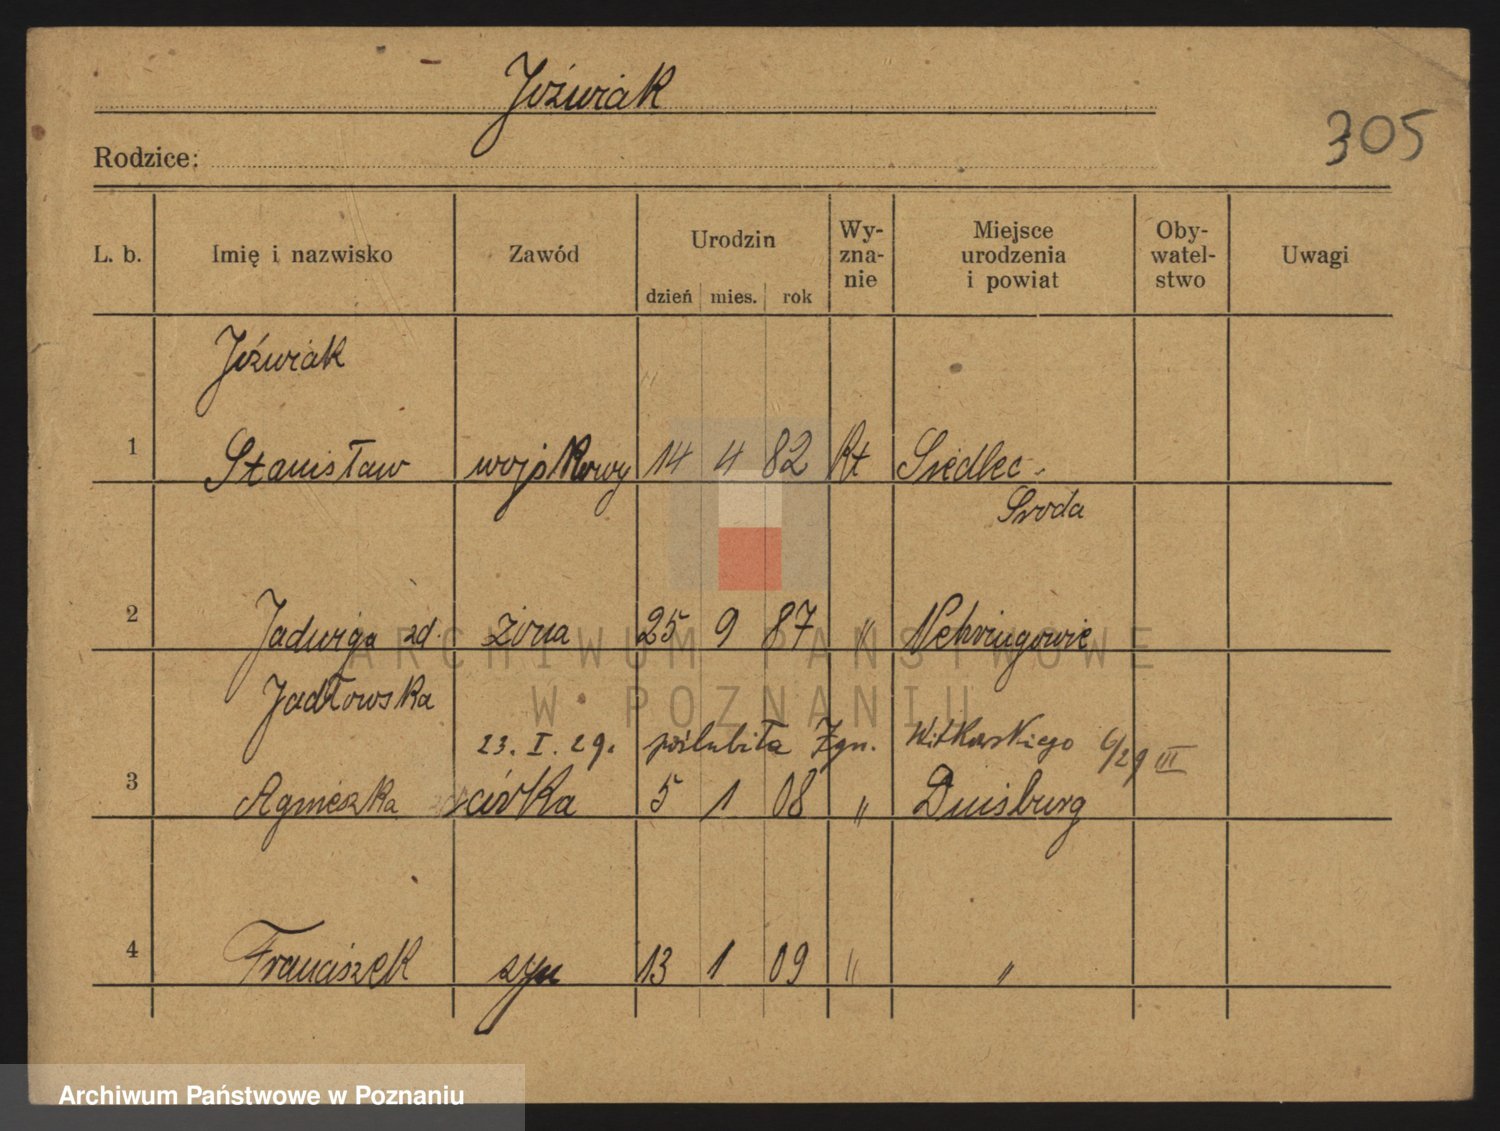 Jóźwiak
305
Rodzice:
L. b. Imię i nazwisko Zawód Urodzin dzień mies. rok Wy-zna-nie Miejsce urodzenia i powiat Oby-watel-stwo Uwagi
Jóźwiak
1 Stanisław wojskowy 14 4 82 Rt Siedlec -
Sroda
2 Jadwiga zd. żona 25 9 87 " Nehringowie
Jadłowska
23. I. 29. poślubiła Zgn. Witkowskiego 6/29 III
3 Agnieszka córka 5 1 08 " Duisburg
4 Franciszek syn 13 1 09 " "
ARCHIWUM PAŃSTWOWE
W POZNANIU
Archiwum Państwowe w Poznaniu